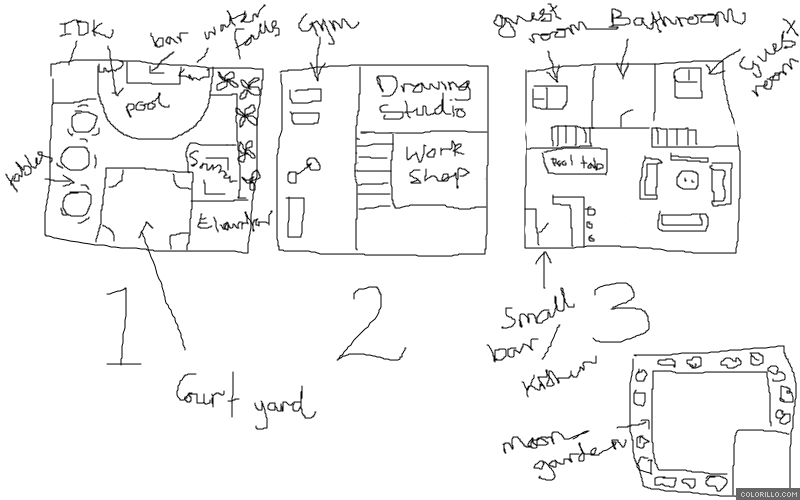 IDK
bar
water
falls
pool
tables
Elavator
Court yard
1
Gym
Drawing
Studio
Work
Shop
2
guest
room
Bathroom
guest
room
Pool tab
Small
bar
3
moon
garden
COLORILLO.COM